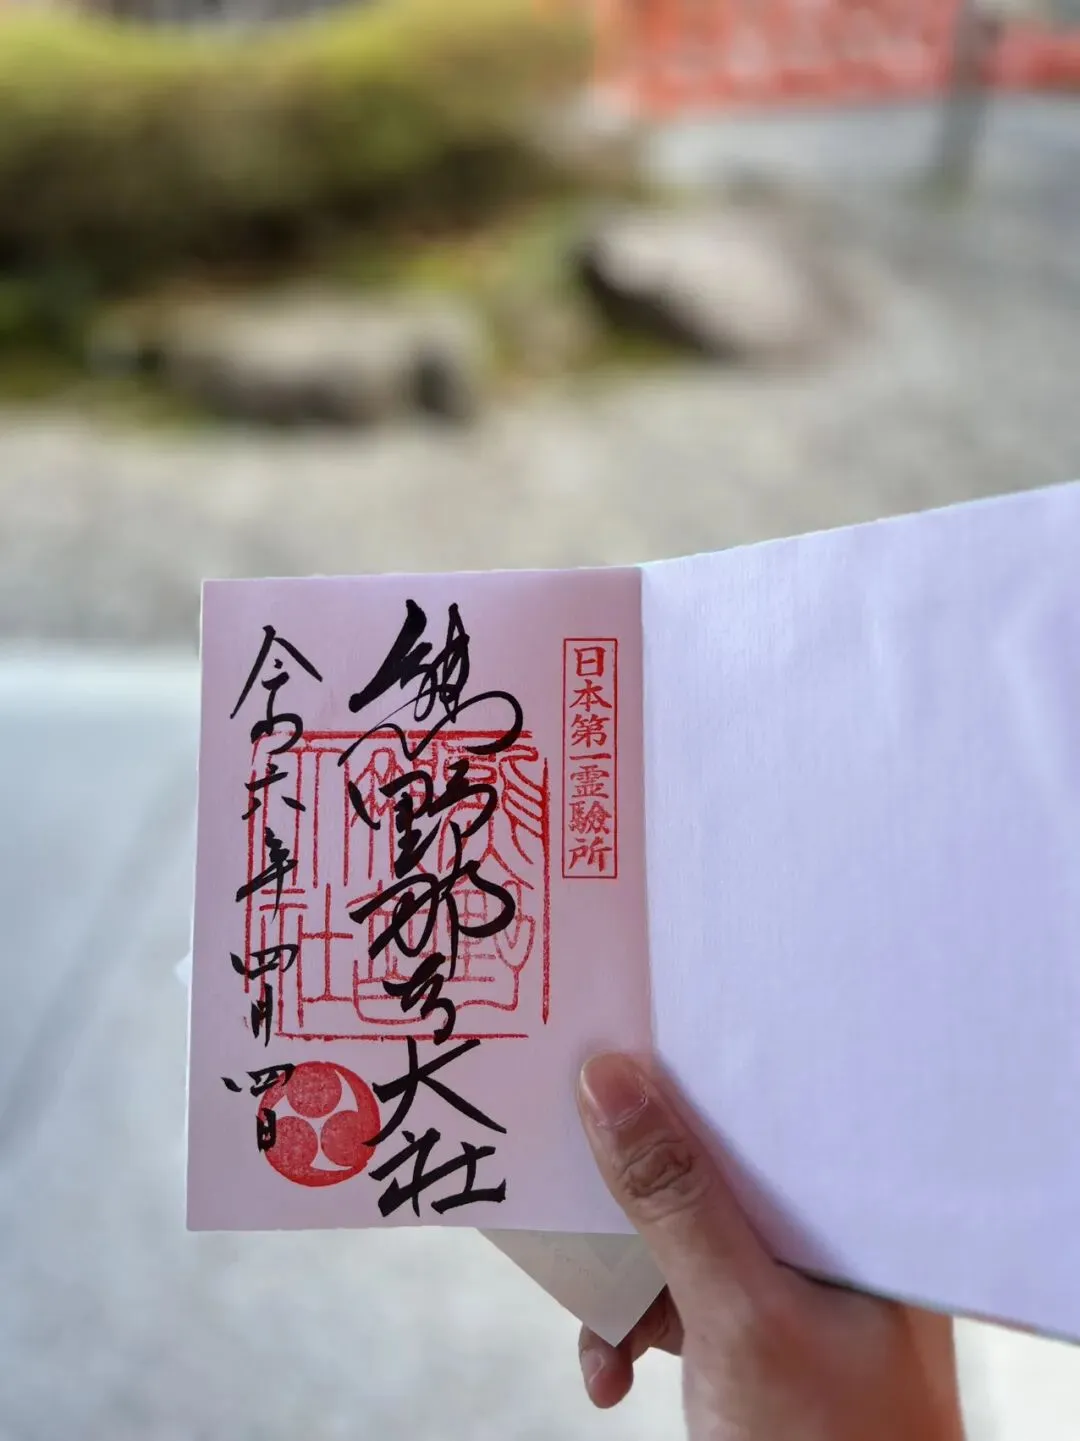 日本第一霊驗所
熊野那智大社
令和六年四月四日